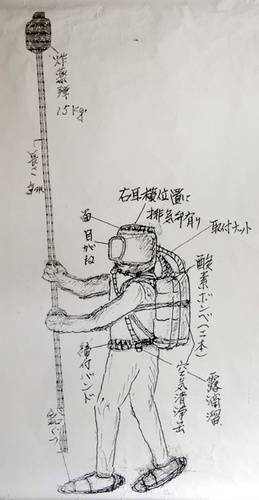 炸薬弾
15kg
長さ
右耳横位置に
排気弁有り
面目がね
取付ナット
酸素ボンベ(二本)
空気清浄缶
締付バンド
鉛ぐつ